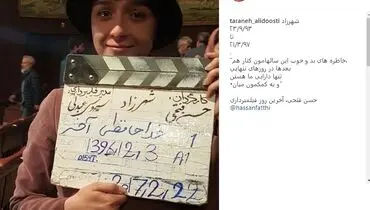 taraneh_alidoosti شهرزاد
۲۳/۹/۹۳
تا
۲۱/۳/۹۷
.
"خاطره های بد و خوب این سالهامون کنار هم،
بعدها در روزهای تنهایی
تنها دارایی ما هستن
و به کمکمون میان"
حسن فتحی، آخرین روز فیلمبرداری
@hassanfatthi
کارگردان
حسن فتحی
شهرزاد
مدیر فیلمبرداری
خداحافظی آخر
1
1396,12,3
A1
1
22